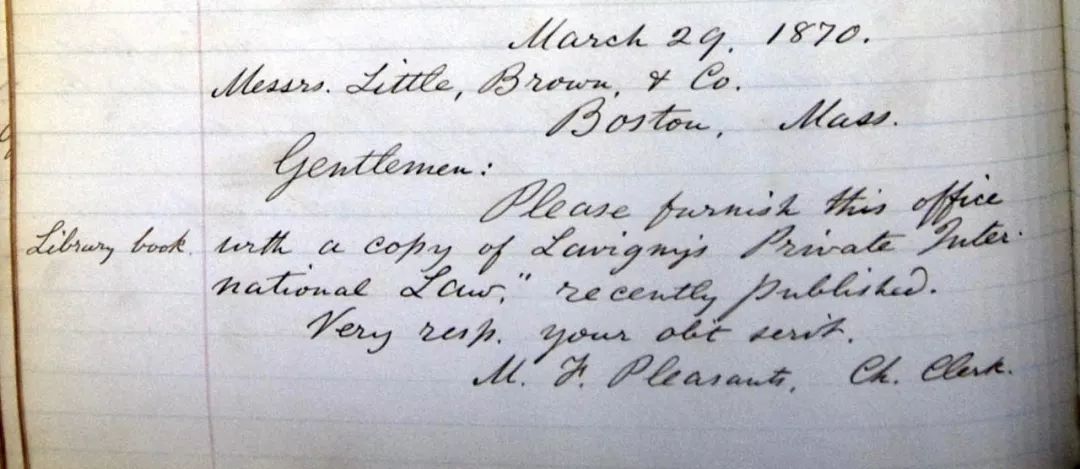 March 29. 1870.
Messrs. Little, Brown, & Co.
Boston, Mass.
Gentlemen:
Please furnish this office
Library book. with a copy of Savigny's Private Inter-
national Law," recently published.
Very resp. your obt servt.
M. F. Pleasants, Ch. Clerk.